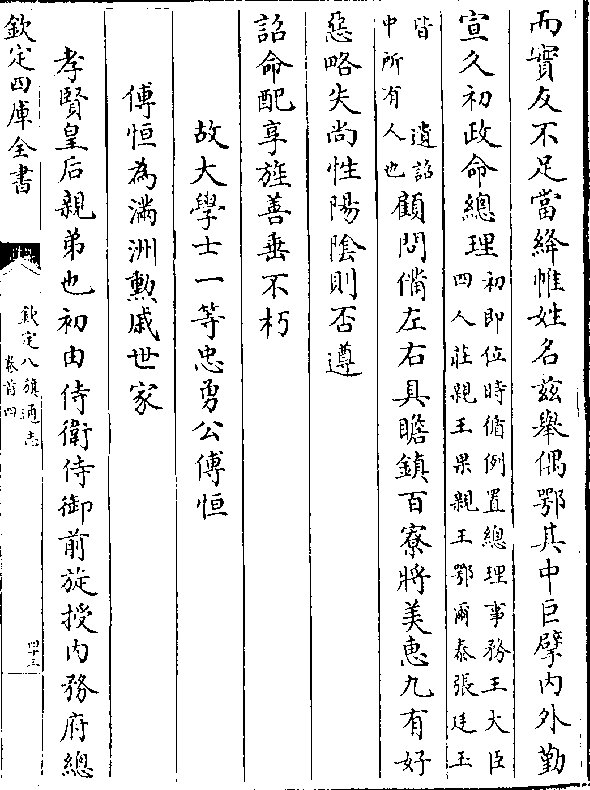 而實友不足當絳帷姓名兹舉偶鄂其中巨擘内外勤
宣久初政命總理
初即位時循例置總理事務王大臣
四人莊親王果親王鄂爾泰張廷玉
皆 遺詔
中所有人也
顧問備左右具瞻鎮百寮將美惠九有好
惡略失尚性陽陰則否遵
詔命配享旌善垂不朽
故大學士一等忠勇公傅恒
傅恒為滿洲勲戚世家
孝賢皇后親弟也初由侍衛侍御前旋授内務府總
欽定四庫全書
欽定八旗通志
卷首四
四十三